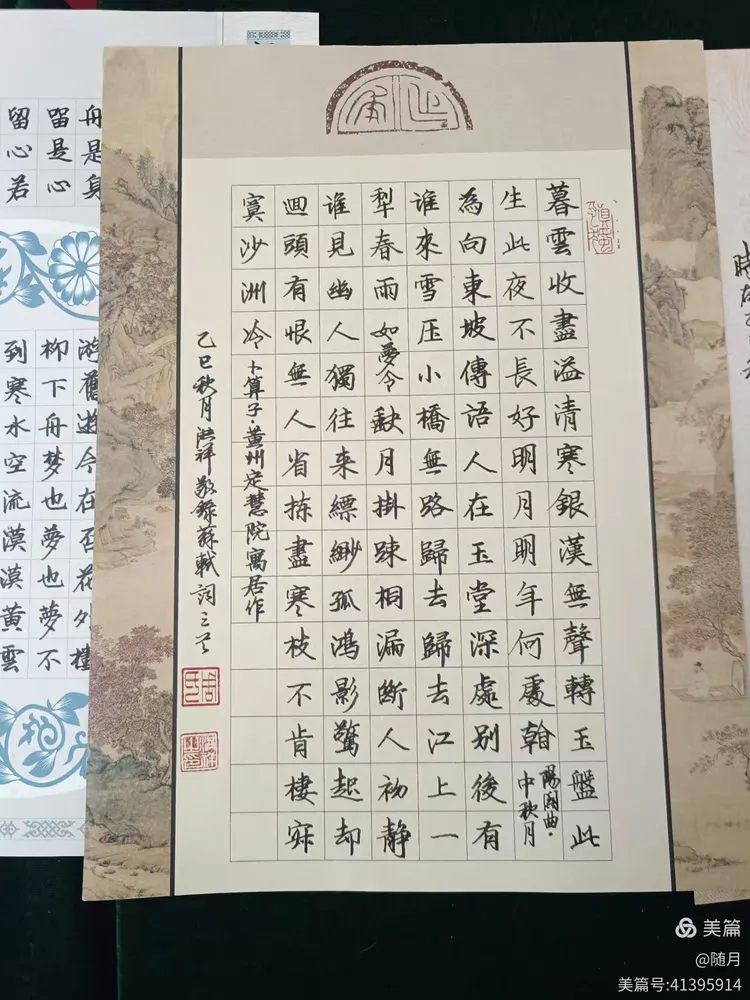 暮雲收盡溢清寒銀漢無聲轉玉盤此
生此夜不長好明月明年何處看陽關曲·中秋月
為向東坡傳語人在玉堂深處別後有
誰來雪压小橋無路歸去歸去江上一
犁春雨如夢令缺月掛踈桐漏斷人初靜
誰見幽人獨往来縹緲孤鴻影驚起却
迴頭有恨無人省揀盡寒枝不肯棲寂
寞沙洲冷卜算子·黄州定慧院寓居作
乙巳秋月洪祥敬録蘇軾詞三首
舟是身
留是心
留心若
游舊遊今在否花外樓
柳下舟梦也夢也夢不
到寒水空流漠漠黄雲
美篇
@随月
美篇号:41395914